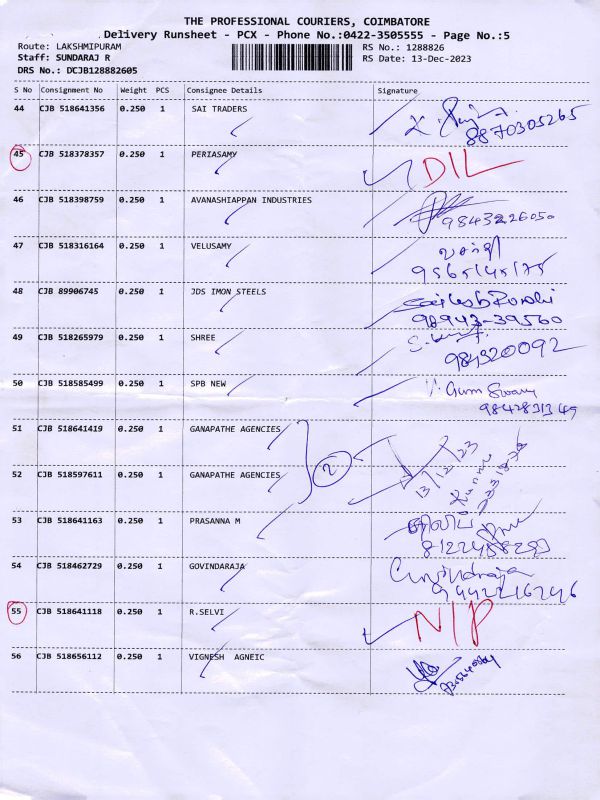 THE PROFESSIONAL COURIERS, COIMBATORE
Delivery Runsheet - PCX - Phone No.:0422-3505555 - Page No.:5
Route: LAKSHMIPURAM RS No.: 1288826
Staff: SUNDARAJ R RS Date: 13-Dec-2023
DRS No.: DCJB128882605
S No Consignment No Weight PCS Consignee Details Signature
44 CJB 518641356 0.250 1 SAI TRADERS
8870305265
45 CJB 518378357 0.250 1 PERIASAMY DIL
46 CJB 518398759 0.250 1 AVANASHIAPPAN INDUSTRIES
9843226050
47 CJB 518316164 0.250 1 VELUSAMY
48 CJB 89906745 0.250 1 JDS IMON STEELS
98943-39560
49 CJB 518265979 0.250 1 SHREE
984320092
50 CJB 518585499 0.250 1 SPB NEW
51 CJB 518641419 0.250 1 GANAPATHE AGENCIES
2 13/12/23
52 CJB 518597611 0.250 1 GANAPATHE AGENCIES
53 CJB 518641163 0.250 1 PRASANNA M
54 CJB 518462729 0.250 1 GOVINDARAJA
55 CJB 518641118 0.250 1 R.SELVI N/P
56 CJB 518656112 0.250 1 VIGNESH AGNEIC